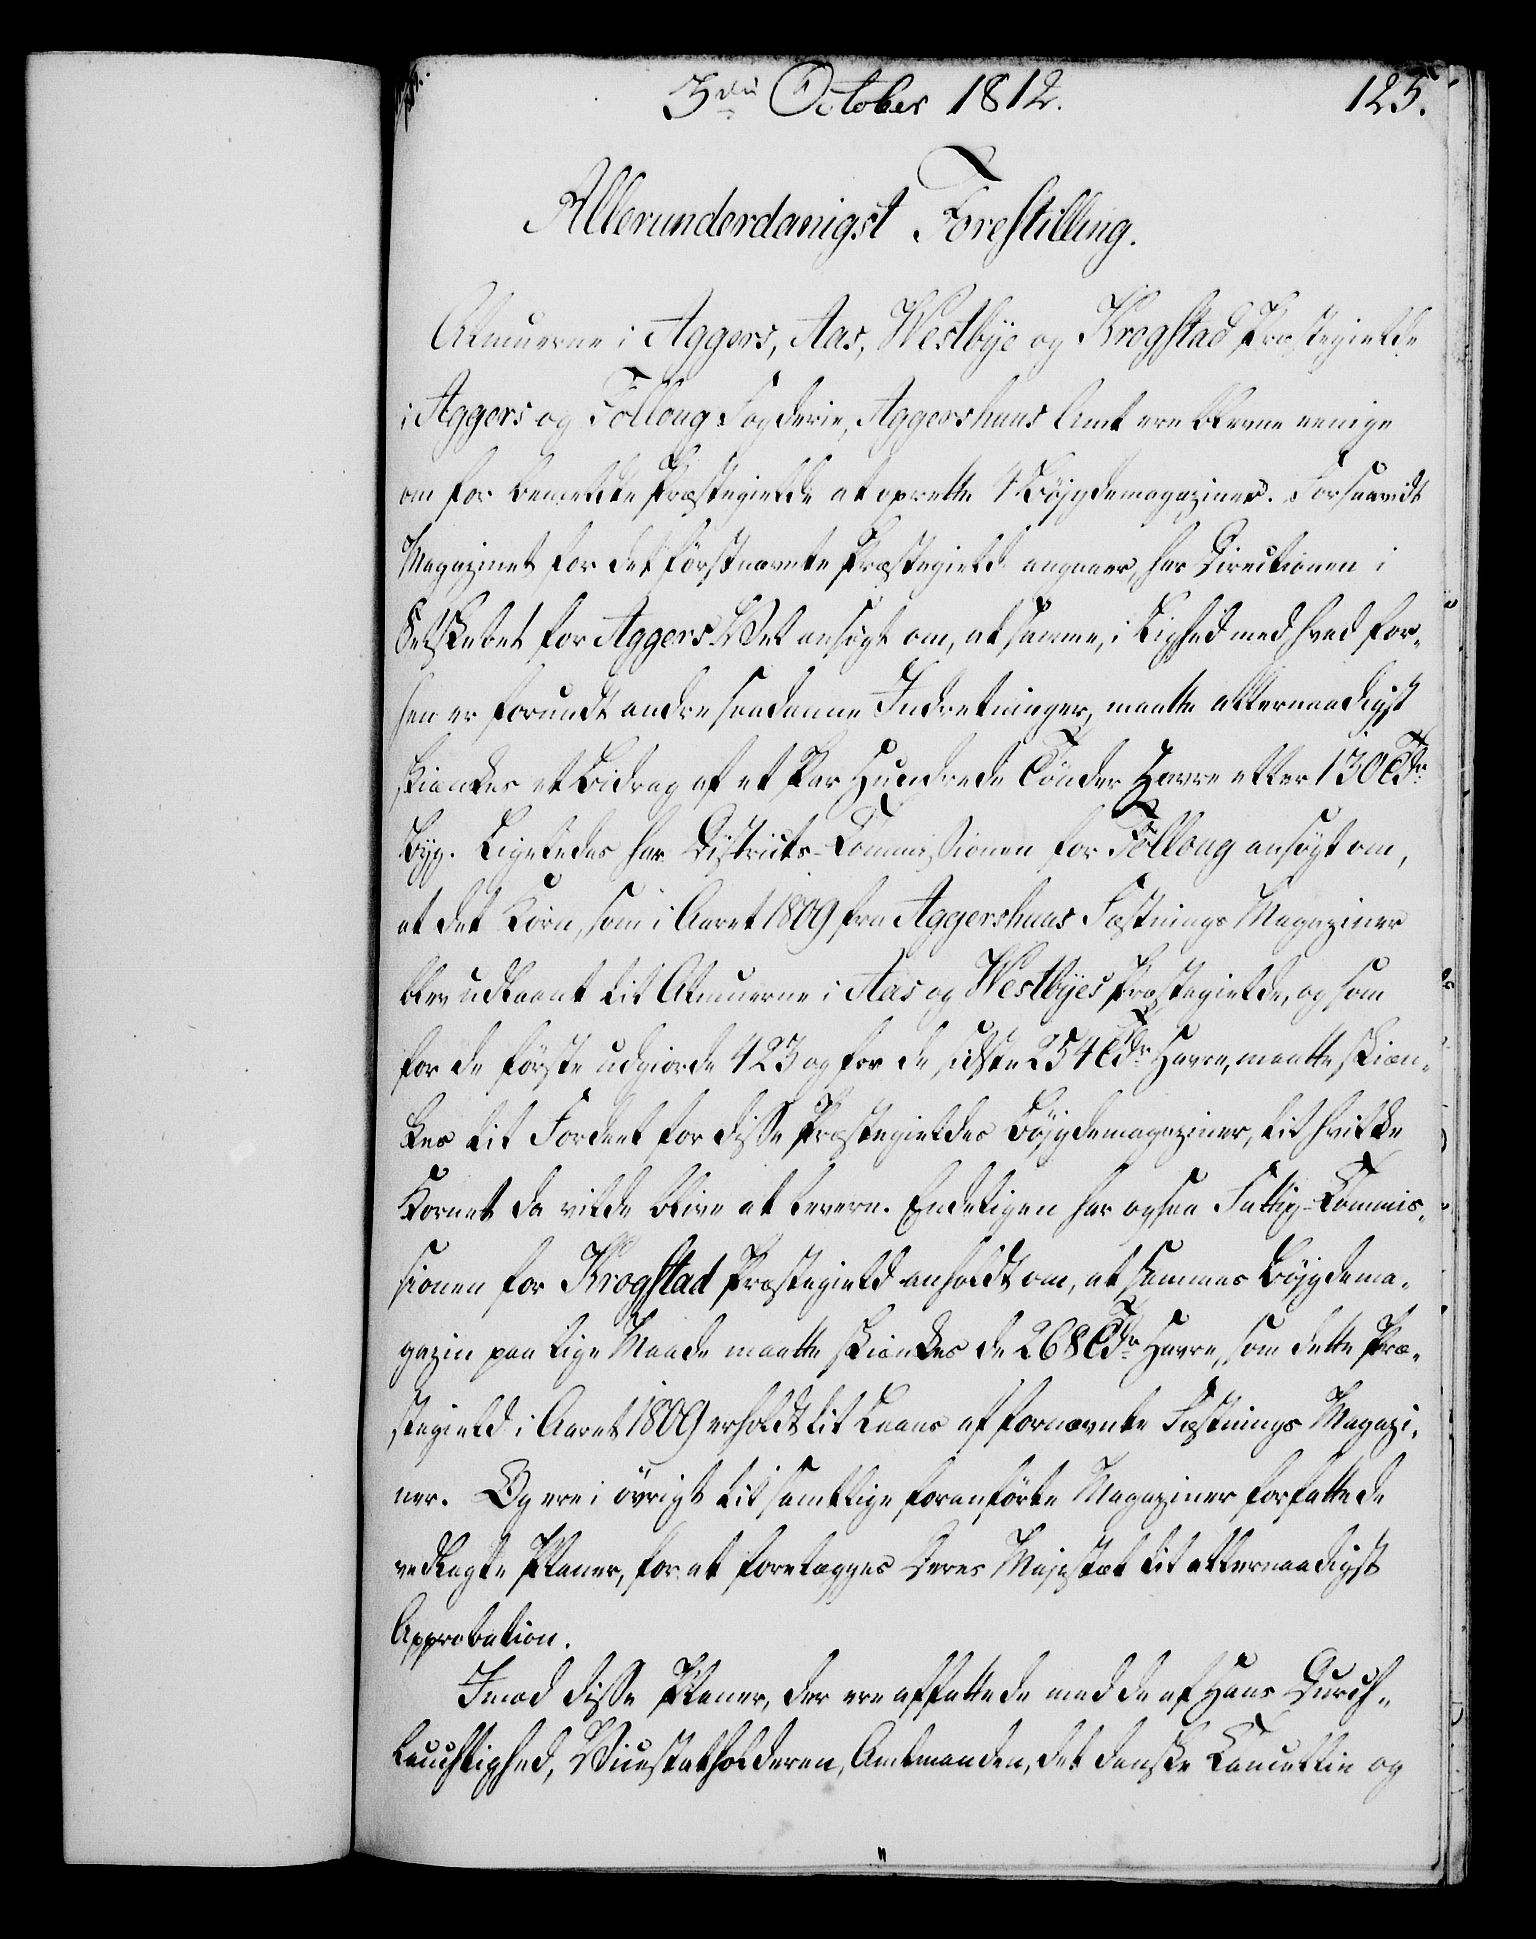 3die October 1812. 125.
Allerunderdanigst Forestilling.
Almuerne i Aggers, Aas, Westbye og Krogstad Præstegielde
i Aggers og Folloug Fogderie, Aggershuus Amt ere blevne eenige
om for bemeldte Præstegielde at oprette 4 Bøjgdemagaziner. Forsaavidt
Magazinet for det förstnævnte Præstegield angaaer, har Directionen i
Selskabet for Aggers Vel ansøgt om, at samme, i Lighed med hvad for-
hen er forundt andre saadanne Indretninger, maatte allernaadigst
skienkes et Bidrag af et Par Hundrede Tönder Havre eller 130 Tdr
Byg. Ligeledes har Districts-Commissionen for Folloug ansøgt om,
at det Korn, som i Aaret 1809 fra Aggershuus Fæstnings Magaziner
blev udlaant til Almuerne i Aas og Westbyes Præstegielde, og som
for de förste udgiorde 423 og for de sidste 254 Tdr Havre, maatte skien-
kes til Fordeel for disse Præstegieldes Bøjgdemagaziner, til hvilke
Kornet da vilde blive at levere. Endeligen har ogsaa Fattig-Commis-
sionen for Krogstad Præstegield anholdt om, at sammes Bøjgdema-
gazin paa lige Maade maatte skienkes de 268 Tdr Havre, som dette Præ-
stegield i Aaret 1809 erholdt til Laans af fornævnte Fæstnings Magazi-
ner. Og ere i övrigt til samtlige foranförte Magaziner forfattede
vedlagte Planer, for at forelægges Deres Majestæt til allernaadigst
Approbation.
Imod disse Planer, der ere affattede med de af Hans Durch-
lauchtighed, Vicestatholderen, Amtmanden, det danske Cancellie og